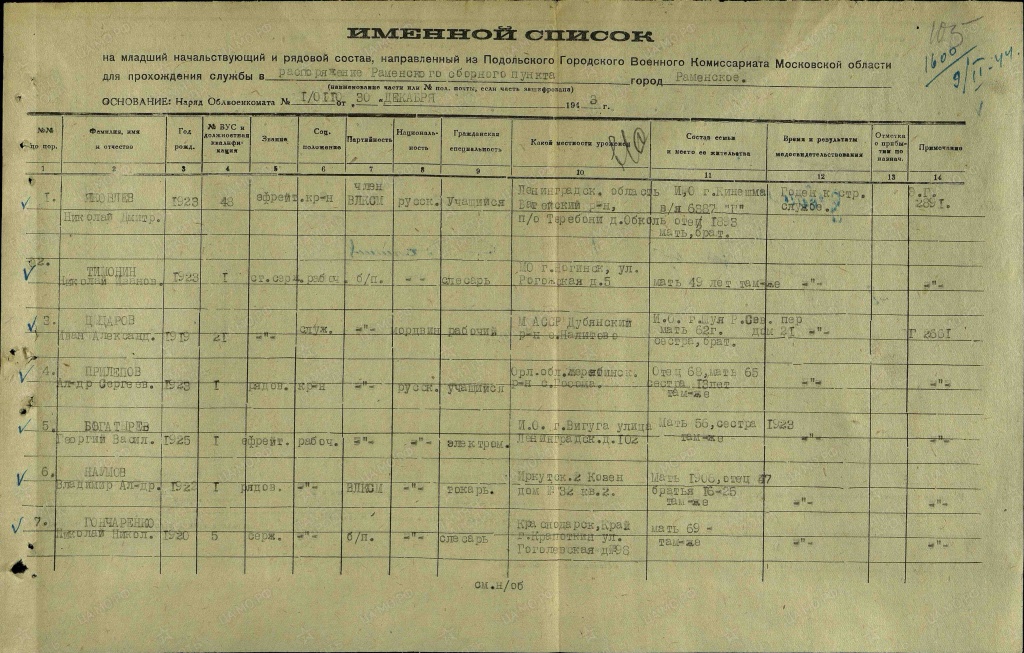 105
1600
9/II-44.
ИМЕННОЙ СПИСОК
на младший начальствующий и рядовой состав, направленный из Подольского Городского Военного Комиссариата Московской области
для прохождения службы в распоряжение Раменского сборного пункта город Раменское.
(наименование части или № пол. почты, если часть зашифрована)
ОСНОВАНИЕ: Наряд Облвоенкомата № 1/0110 от „30" ДЕКАБРЯ 1943 г.
№№ по пор. Фамилия, имя и отчество Год рожд. № ВУС и должностная квалификация Звание Соц. положение Партийность Национальность Гражданская специальность Какой местности уроженец Состав семьи и место ее жительства Время и результаты медосвидетельствования Отметка о прибытии по назнач. Примечание
1 2 3 4 5 6 7 8 9 10 11 12 13 14
1. ЯКОВЛЕВ Николай Дмитр. 1923 43 ефрейт. кр-н член ВЛКСМ русск. Учащийся Ленинградск. область
п/о Теребони отец 1893
И.О г.Кинешма
в/я 6387 "Г"
мать, брат.
Годен к стр. службе. В.Г. 2891.
2. ТИМОНИН Николай Иванов. 1923 1 ст.серж. рабоч. б/п. -"- слесарь МО г.Ногинск, ул.
Рогожская д.5
мать 49 лет там-же -"- -"-
3. Иван Александ. 1919 21 -"- служ. -"- мордвин рабочий М АССР Дубянский
р-н
И.О. г.Шуя
мать 62г. дом 21
сестра, брат.
-"- Г 2661
4. ПРИЛЕПОВ Ал-др Сергеев. 1923 1 рядов. кр-н -"- русск. учащийся Орл.обл.
р-н
Отец 68, мать 65
сестра 13лет
там-же
-"- -"-
5. БОГАТЫРЕВ Георгий Васил. 1925 1 ефрейт. рабоч. -"- -"- электром. И.О. г.Вичуга улица
Ленинградск.д.102
Мать 56, сестра 1923
там-же
-"- -"-
6. НАУМОВ Владимир Ал-др. 1923 1 рядов. -"- ВЛКСМ -"- токарь.
дом № 32 кв.2.
Мать 1906, отец 47
братья 16-25
там-же
-"- -"-
7. ГОНЧАРЕНКО Николай Никол. 1920 5 серж. -"- б/п. -"- слесарь Краснодарск, Край
г.Кропоткин ул.
Гоголевская д№98
мать 69 -
там-же
-"- -"-
см.н/об